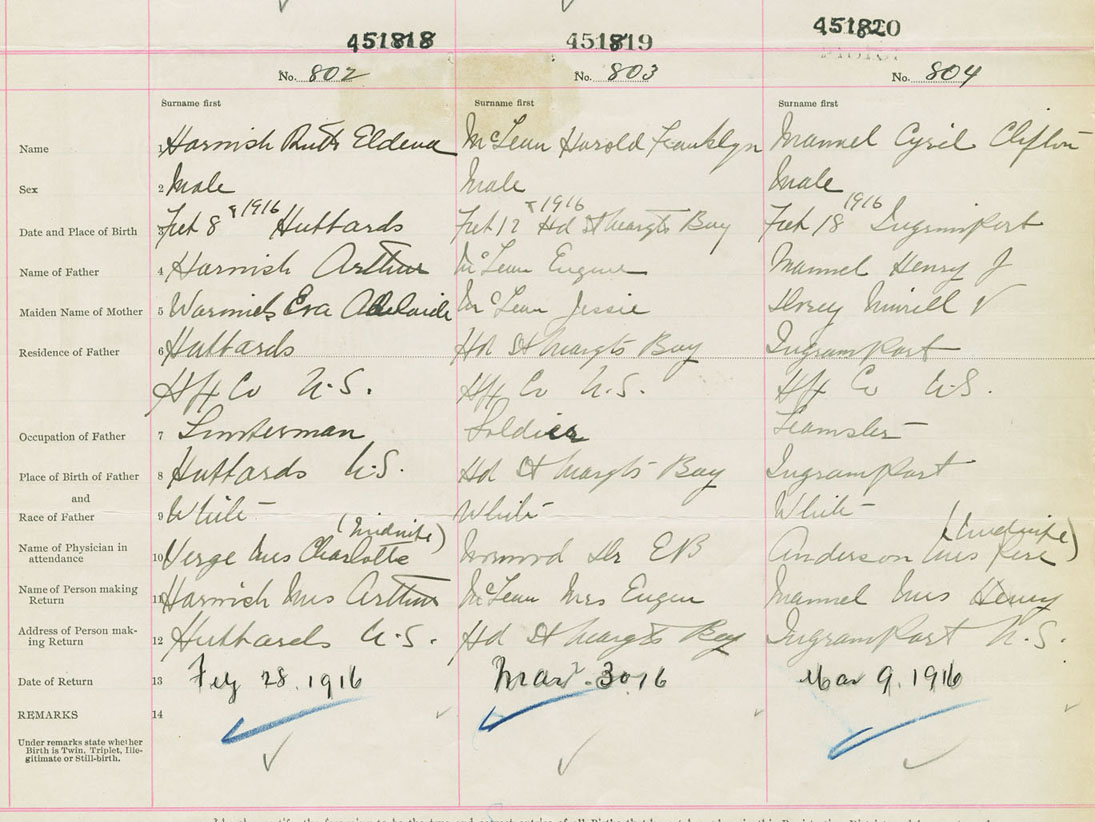 451818 451819 451820
No. 802 No. 803 No. 804
Surname first Surname first Surname first
Name 1 Harnish Ruth Eldena McLean Harold Franklyn Mannel Cyril Clifton
Sex 2 Male Male Male
Date and Place of Birth Feb 8 1916 Hubbards Feb 12 1916 Hd St Margts Bay Feb 18 1916 Ingramport
Name of Father 4 Harnish Arthur McLean Eugene Mannel Henry J
Maiden Name of Mother 5 Eva Adelaide McLean Jessie V
Residence of Father 6 Hubbards Hd St Margts Bay IngramPort
Hfx Co N.S. Hfx Co N.S. Hfx Co N.S.
Occupation of Father 7 Lumberman Soldier Teamster
Place of Birth of Father 8 Hubbards N.S. Hd St Margts Bay IngramPort
and
Race of Father 9 White White White
(midwife) (midwife)
Name of Physician in
attendance 10 Verge Mrs Charlotte Dr E B Anderson Mrs
Name of Person making
Return 11 Harnish Mrs Arthur McLean Mrs Eugen Mannel Mrs Henry
Address of Person mak-
ing Return 12 Hubbards N.S. Hd St Margts Bay IngramPort N.S.
Date of Return 13 28. 1916 Mar. 30 16 Mar 9. 1916
REMARKS 14
Under remarks state whether
Birth is Twin, Triplet, Ille-
gitimate or Still-birth.